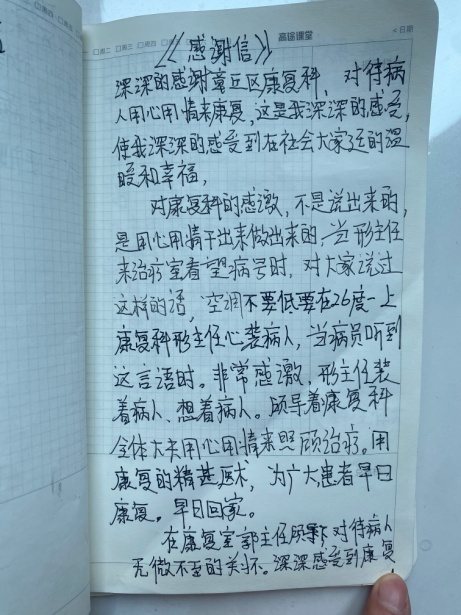 周二 周三 周四 高途课堂 日期
《感谢信》
深深的感谢章丘区康复科，对待病
人用心用情来康复，这是我深深的感受，
使我深深的感受到在社会大家庭的温
暖和幸福，
对康复科的感激，不是说出来的，
是用心用情干出来做出来的，当形主任
来治疗室看望病号时，对大家说过
这样的话，空调不要低要在26度一上
康复科形主任心装病人，当病员听到
这言语时。非常感激，形主任装
着病人、想着病人。领导着康复科
全体大夫用心用情来照顾治疗。用
康复的精甚医术，为广大患者早日
康复。早日回家。
在康复室郭主任 对待病人
无微不至的关怀。深深感受到康复